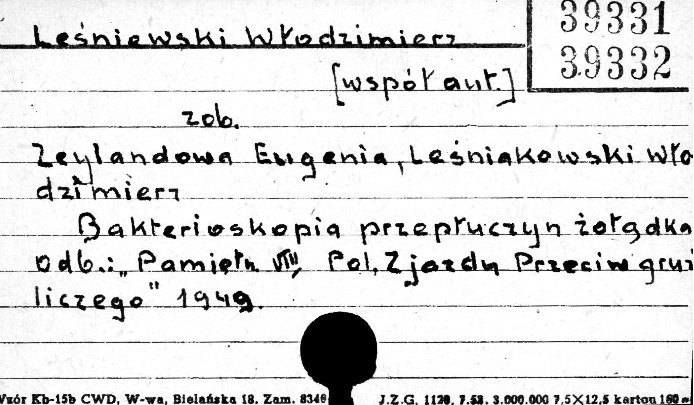 Leśniewski Włodzimierz
39331
39332
[współaut.]
zob.
Zeylandowa Eugenia, Leśniakowski Wło
dzimierz
Bakterioskopia przepłuczyn żołądka
odb.: „Pamiętn. VIII Pol. Zjazdu Przeciwgruź
liczego" 1949.
Wzór Kb-15b CWD, W-wa, Bielańska 18. Zam. 8346 J.Z.G. 1120. 7.58. 3.000.000 7,5X12,5 karton